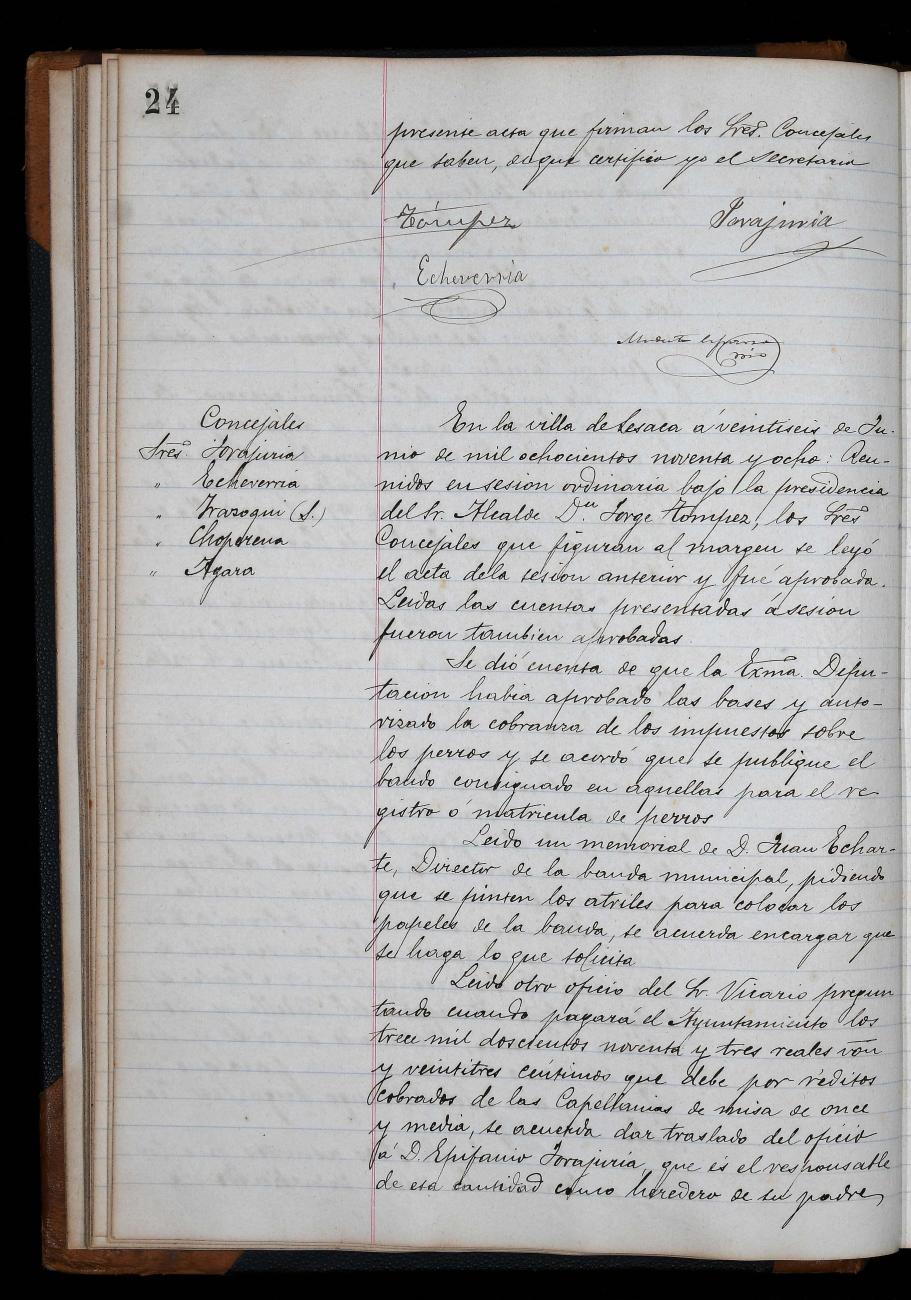 24
presente acta que firman los Sres. Concejales
que saben, de que certifico yo el Secretario
Tómpez
Jorajuria
Echeverria
Concejales
Sres. Jorajuria
" Echeverria
" Irazoqui (S.)
" Choperena
" Agara
En la villa de Lesaca á veintiseis de Ju-
nio de mil ochocientos noventa y ocho: Reu-
nidos en sesion ordinaria bajo la presidencia
del Sr. Alcalde Dn. Jorge Tompez, los Sres
Concejales que figuran al margen se leyó
el acta dela sesion anterior y fué aprobada.
Leidas las cuentas presentadas á sesion
fueron tambien aprobadas
Se dió cuenta de que la Exma. Dipu-
tacion habia aprobado las bases y auto-
rizado la cobranza de los impuestos sobre
los perros y se acordó que se publique el
bando consignado en aquellas para el re-
gistro ó matricula de perros
Leido un memorial de D. Juan Echar-
te, Director de la banda municipal, pidiendo
que se pinten los atriles para colocar los
papeles de la banda, se acuerda encargar que
se haga lo que solicita
Leido otro oficio del Sr. Vicario pregun
tando cuando pagará el Ayuntamiento los
trece mil doscientos noventa y tres reales von
y veintitres céntimos que debe por réditos
cobrados de las Capellanias de misa de once
y media, se acuerda dar traslado del oficio
á D. Epifanio Jorajuria, que és el responsable
de esa cantidad como heredero de su padre,